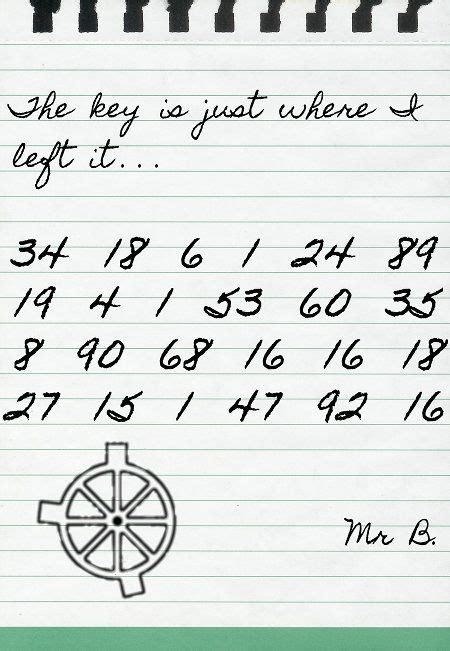 The key is just where I
left it...
34 18 6 1 24 89
19 4 1 53 60 35
8 90 68 16 16 18
27 15 1 47 92 16
Mr B.